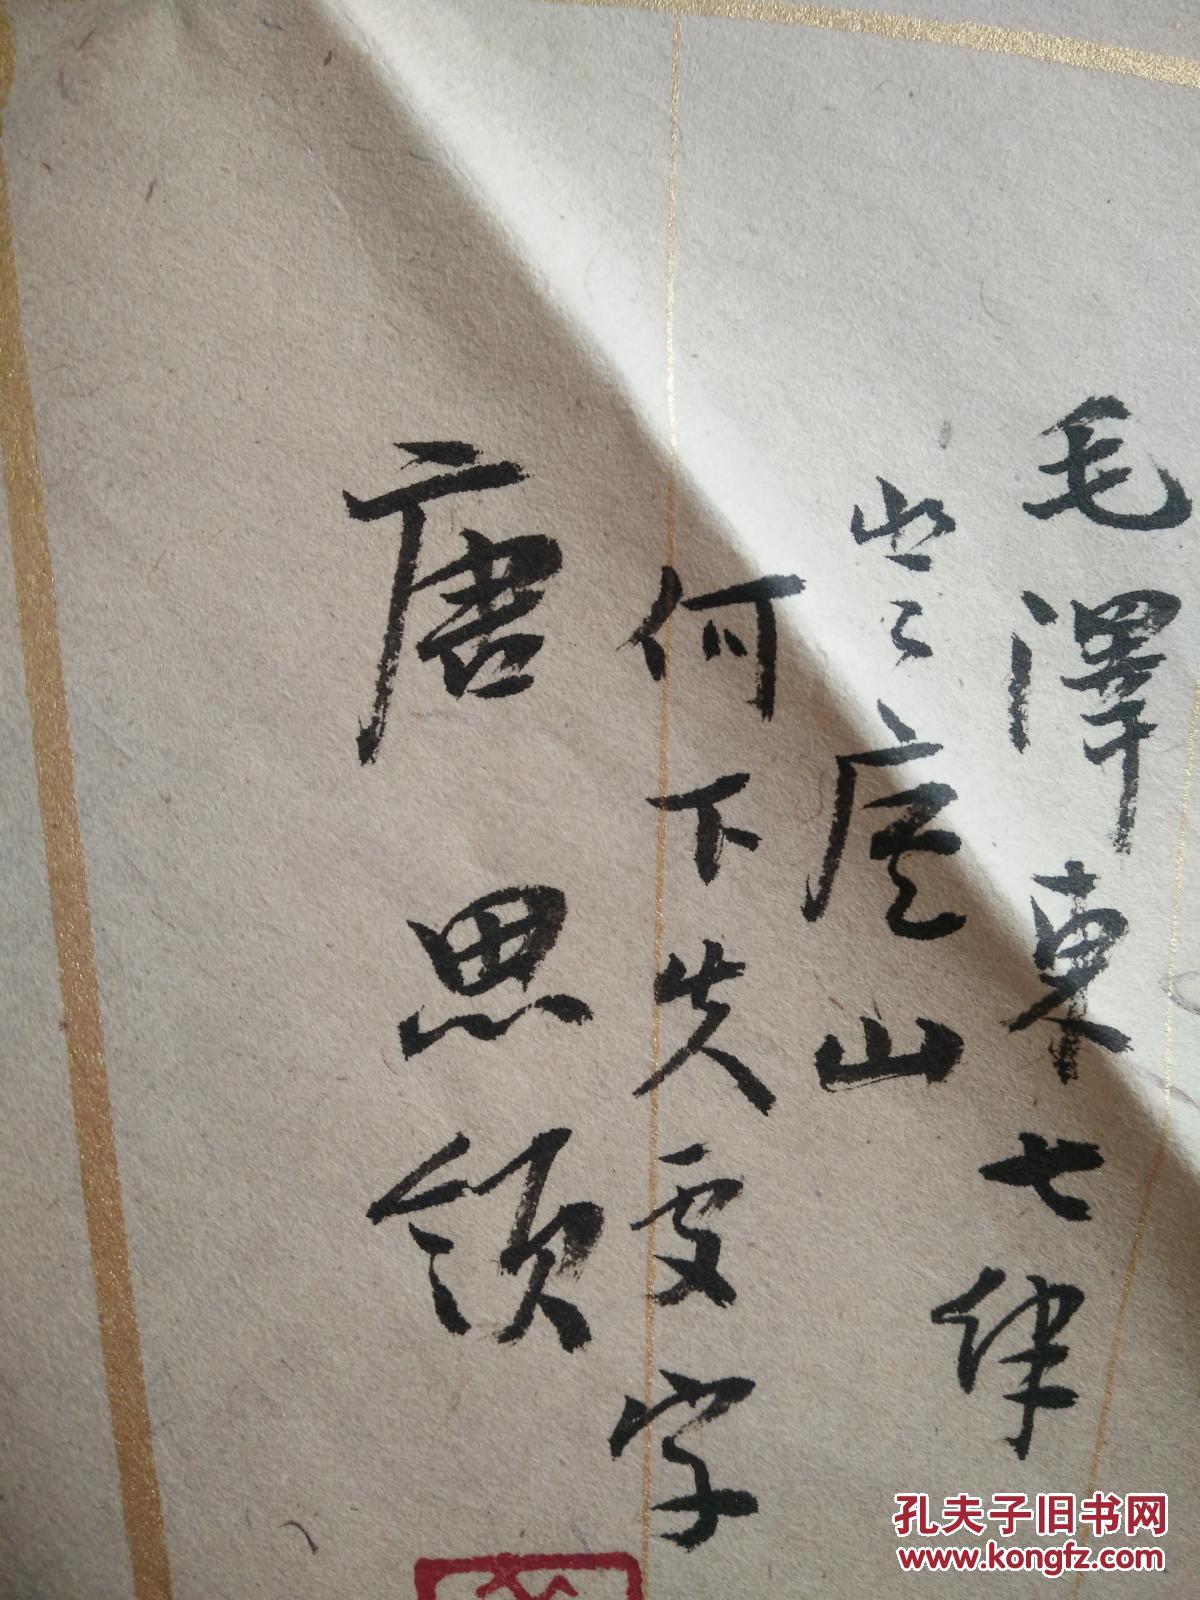 毛澤東七律
登廬山
何下失雯字
唐思領
孔夫子旧书网
www.kongfz.com